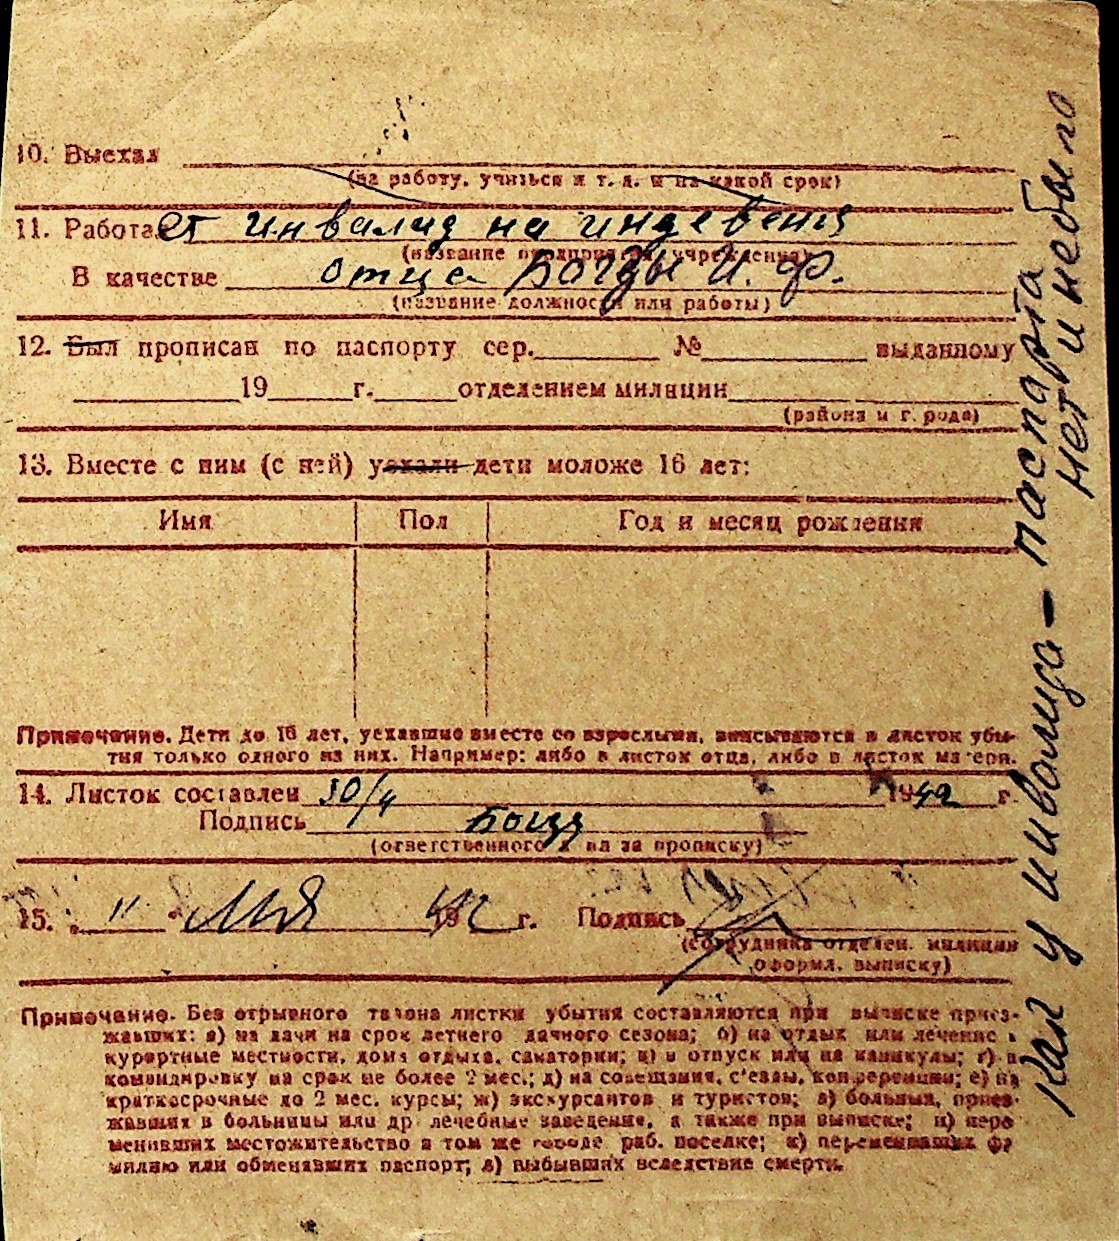 10. Выехал
(на работу, учиться и т. д. и на какой срок)
11. Работает инвалид на индевении
(название предприятия, учреждения)
В качестве отца Богды И. Ф.
(название должности или работы)
12. Был прописан по паспорту сер. № выданному
19 г. отделением милиции
(района и города)
13. Вместе с ним (с ней) уехали дети моложе 16 лет:
Имя Пол Год и месяц рождения
Примечание. Дети до 16 лет, уехавшие вместе со взрослыми, вписываются в листок убы-
тия только одного из них. Например: либо в листок отца, либо в листок матери.
14. Листок составлен 30/4 1942 г.
Подпись Богда
(ответственного лица за прописку)
15. "11" мая 1942 г. Подпись
(сотрудника отделен. милиции
оформл. выписку)
Примечание. Без отрывного талона листки убытия составляются при выписке приез-
жавших: а) на дачи на срок летнего дачного сезона; б) на отдых или лечение в
курортные местности, дома отдыха, санатории; в) в отпуск или на каникулы; г) в
командировку на срок не более 2 мес.; д) на совещания, с'езды, конференции; е) на
краткосрочные до 2 мес. курсы; ж) экскурсантов и туристов; з) больных, приез-
жавших в больницы или др лечебные заведение, а также при выписке; и) пере
менивших местожительство в том же городе раб. поселке; к) переменивших фа
милию или обменявших паспорт; л) выбывших вследствие смерти.
как у инвалида — паспорта
нет и не было